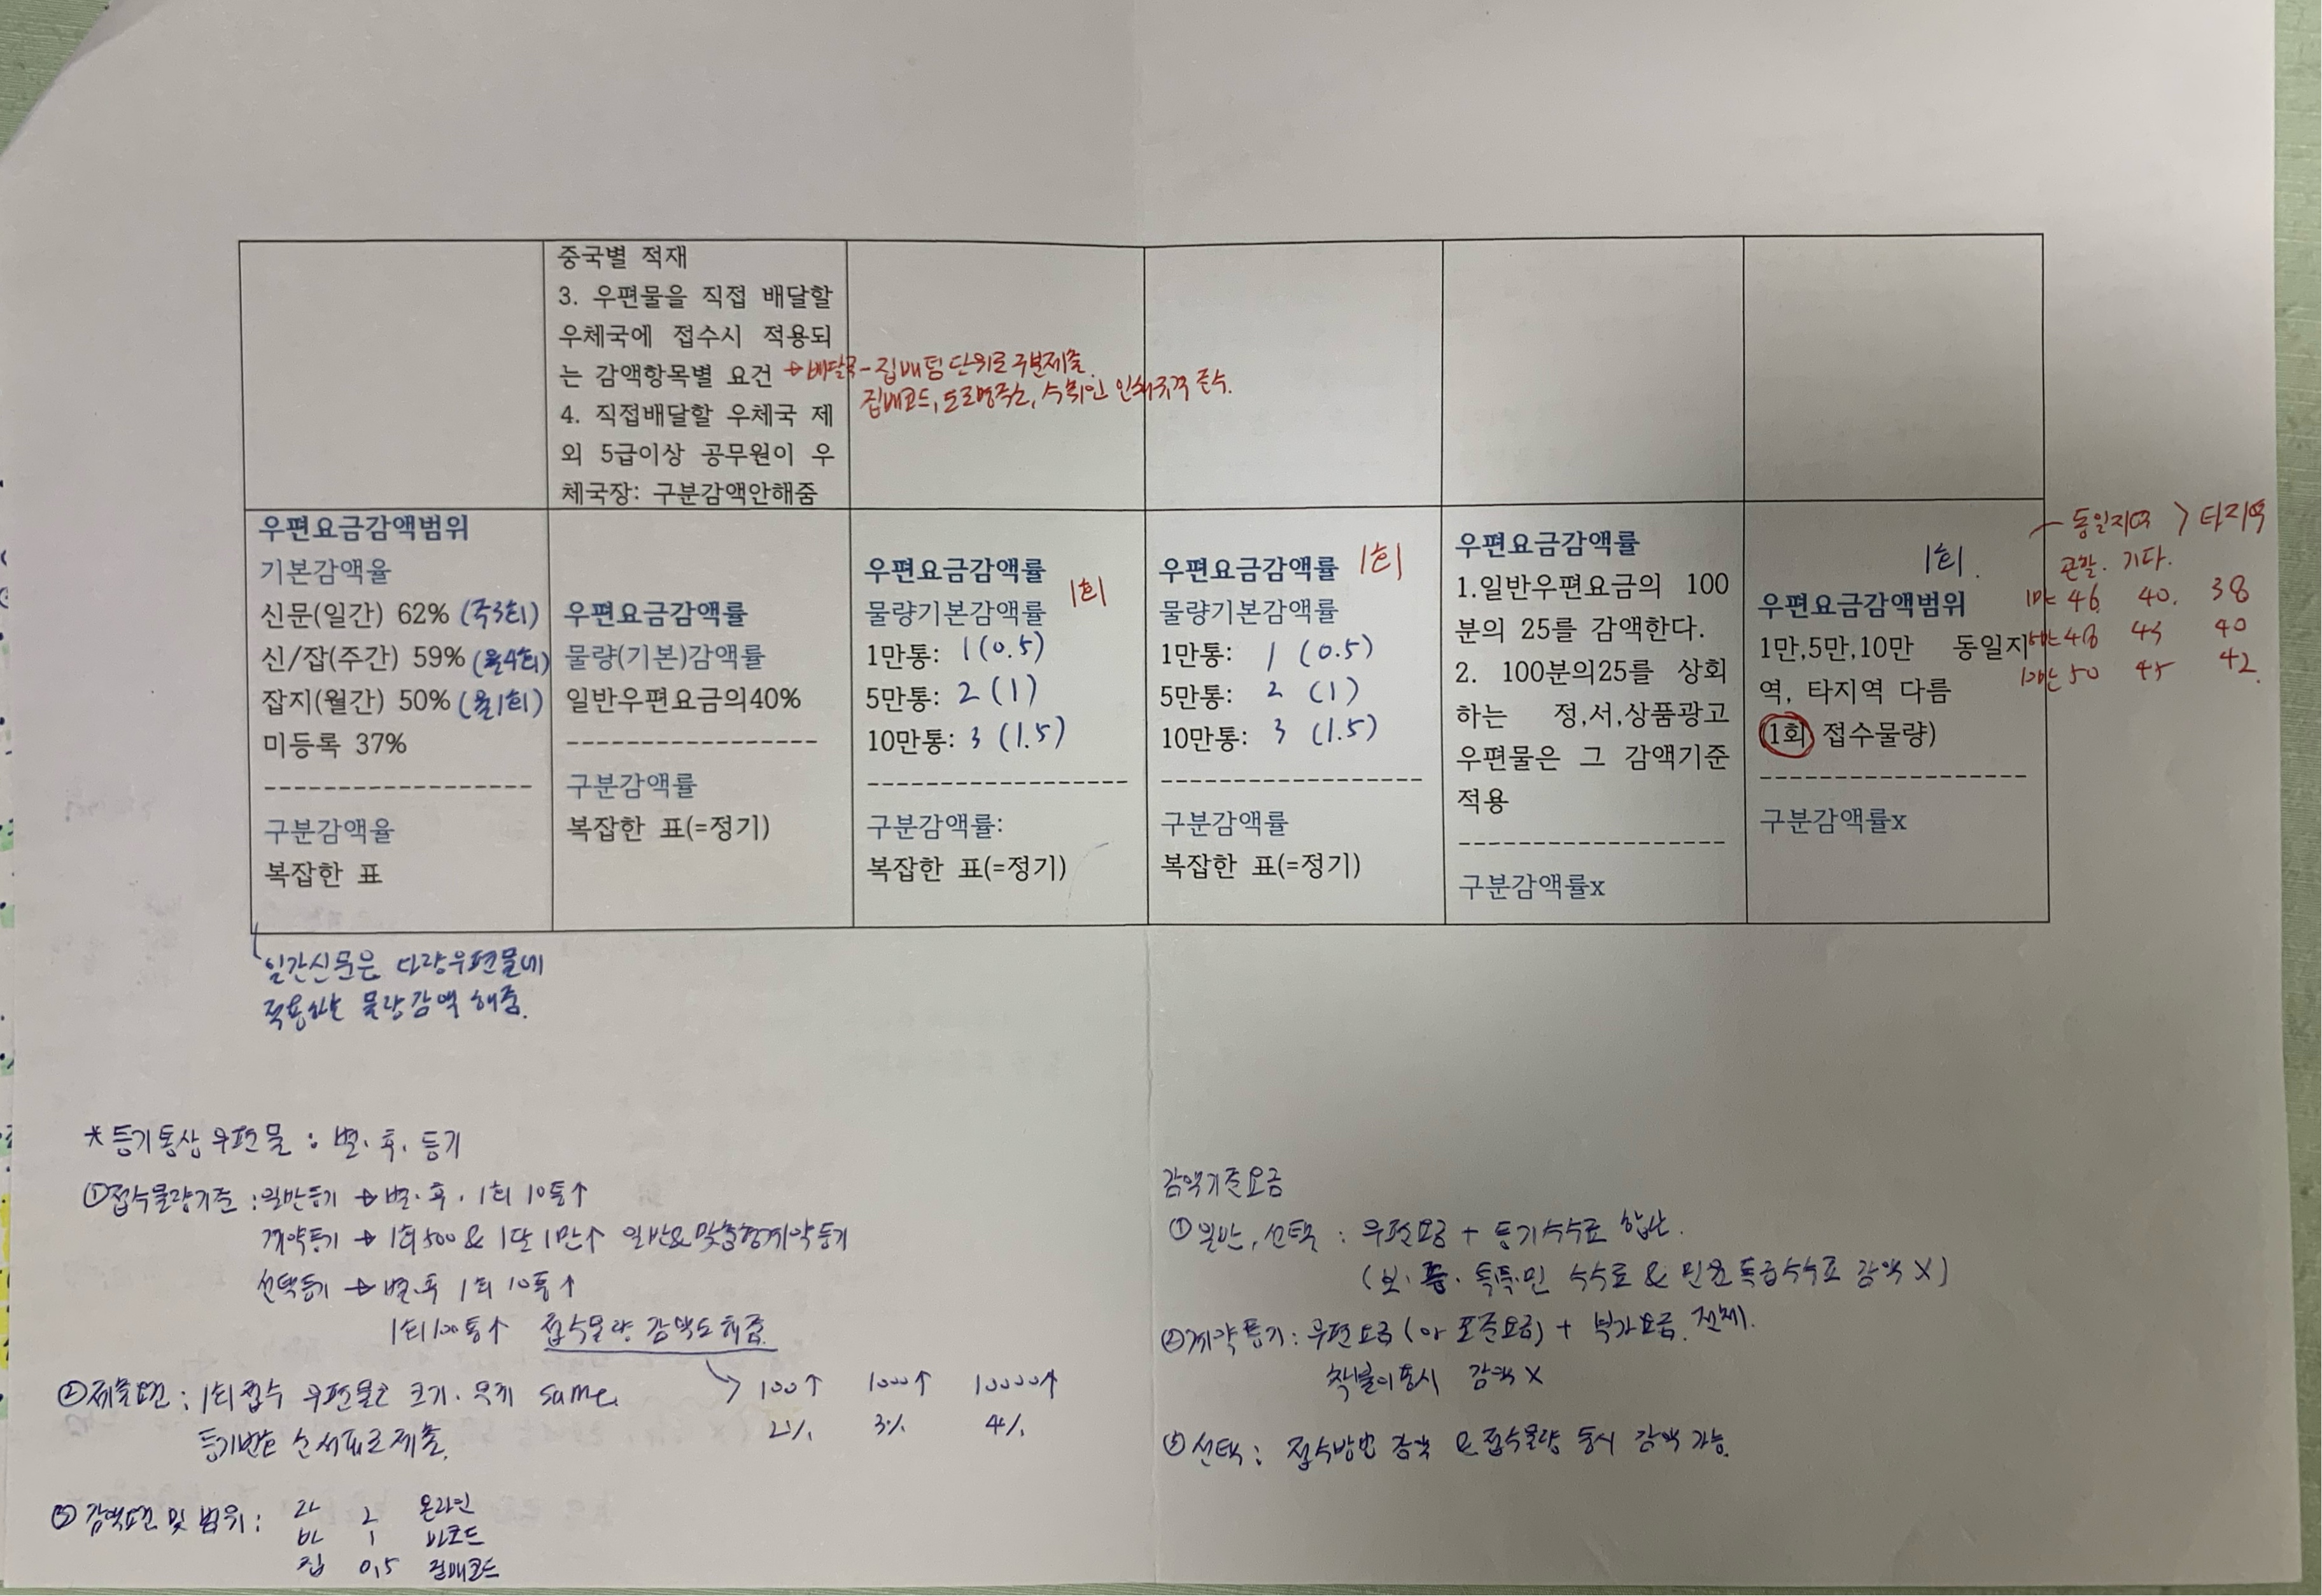 중국별 적재
3. 우편물을 직접 배달할
우체국에 접수시 적용되
는 감액항목별 요건
4. 직접배달할 우체국 제
외 5급이상 공무원이 우
체국장: 구분감액안해줌
→ 배달국-집배팀 단위로 구분제출.
집배코드, 도로명주소, 수취인 인쇄규격 준수.
우편요금감액범위
기본감액율
신문(일간) 62% (주3회)
신/잡(주간) 59% (월4회)
잡지(월간) 50% (월1회)
미등록 37%
------------------
구분감액율
복잡한 표
우편요금감액률
물량(기본)감액률
일반우편요금의40%
-----------------
구분감액률
복잡한 표(=정기)
우편요금감액률
물량기본감액률 1회
1만통: 1 (0.5)
5만통: 2 (1)
10만통: 3 (1.5)
------------------
구분감액률:
복잡한 표(=정기)
우편요금감액률 1회
물량기본감액률
1만통: 1 (0.5)
5만통: 2 (1)
10만통: 3 (1.5)
------------------
구분감액률
복잡한 표(=정기)
우편요금감액률
1.일반우편요금의 100
분의 25를 감액한다.
2. 100분의25를 상회
하는 정,서,상품광고
우편물은 그 감액기준
적용
------------------
구분감액률x
1회.
우편요금감액범위
1만,5만,10만 동일지
역, 타지역 다름
(1회 접수물량)
------------------
구분감액률x
동일지역 > 타지역
관할. 기타.
1만 46. 40. 38
5만 48 43 40
10만 50 45 42.
일간신문은 다량우편물에
적용하는 물량감액 해줌.
* 등기통상 우편물 : 별. 후. 등기
① 접수물량기준 : 일반등기 → 별.후. 1회 10통↑
계약등기 → 1회 500 & 1달 1만↑ 일반&맞춤형계약등기
선택등기 → 별.후 1회 10통↑
1회 100통↑ 접수물량 감액도 해줌.
→ 100↑ 1000↑ 10000↑
2% 3% 4%
② 제출요건 : 1회 접수 우편물은 크기. 무게 same.
등기번호 순서대로 제출.
③ 감액요건 및 범위 :
라 2 온라인
바 1 바코드
집 0.5 집배코드
감액기준요금
① 일반, 선택 : 우편요금 + 등기수수료 합산.
수수료 & 민원 특급수수료 감액 X)
② 계약등기 : 우편요금 (아 표준요금) + 부가요금. 전체.
착불이용시 감액 X
③ 선택 : 접수방법 감액 & 접수물량 동시 감액 가능.